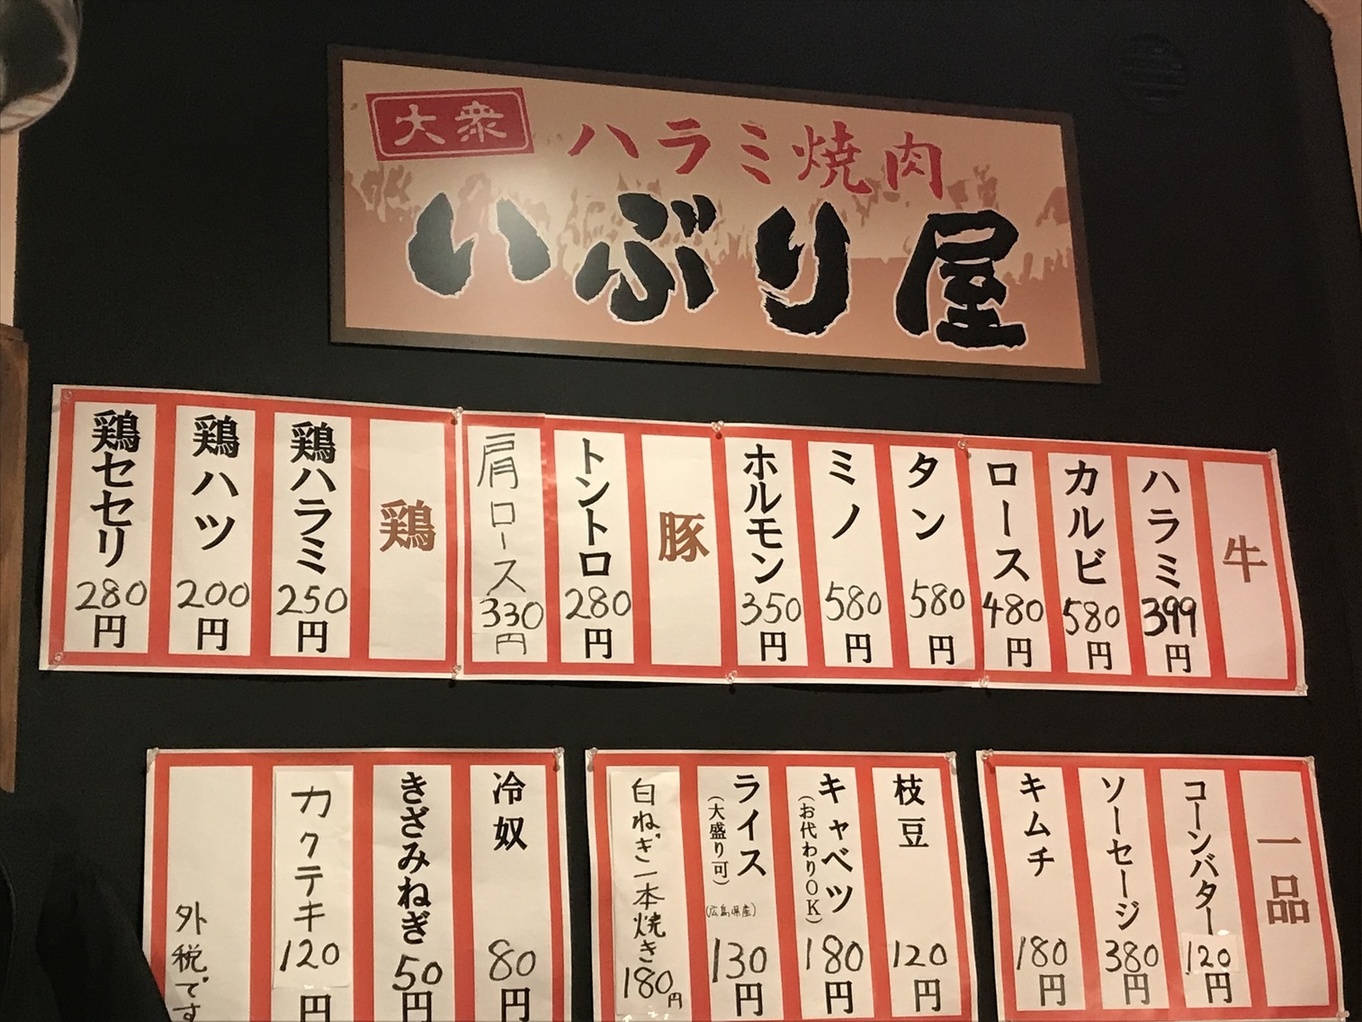 大衆
ハラミ焼肉
いぶり屋
牛
ハラミ 399円
カルビ 580円
ロース 480円
タン 580円
ミノ 580円
ホルモン 350円
豚
トントロ 280円
肩ロース 330円
鶏
鶏ハラミ 250円
鶏ハツ 200円
鶏セセリ 280円
一品
コーンバター 120円
ソーセージ 380円
キムチ 180円
枝豆 120円
キャベツ 180円
(お代わりOK)
ライス 130円
(大盛り可)
(広島県産)
白ねぎ一本焼き 180円
冷奴 80円
きざみねぎ 50円
カクテキ 120円
外税です